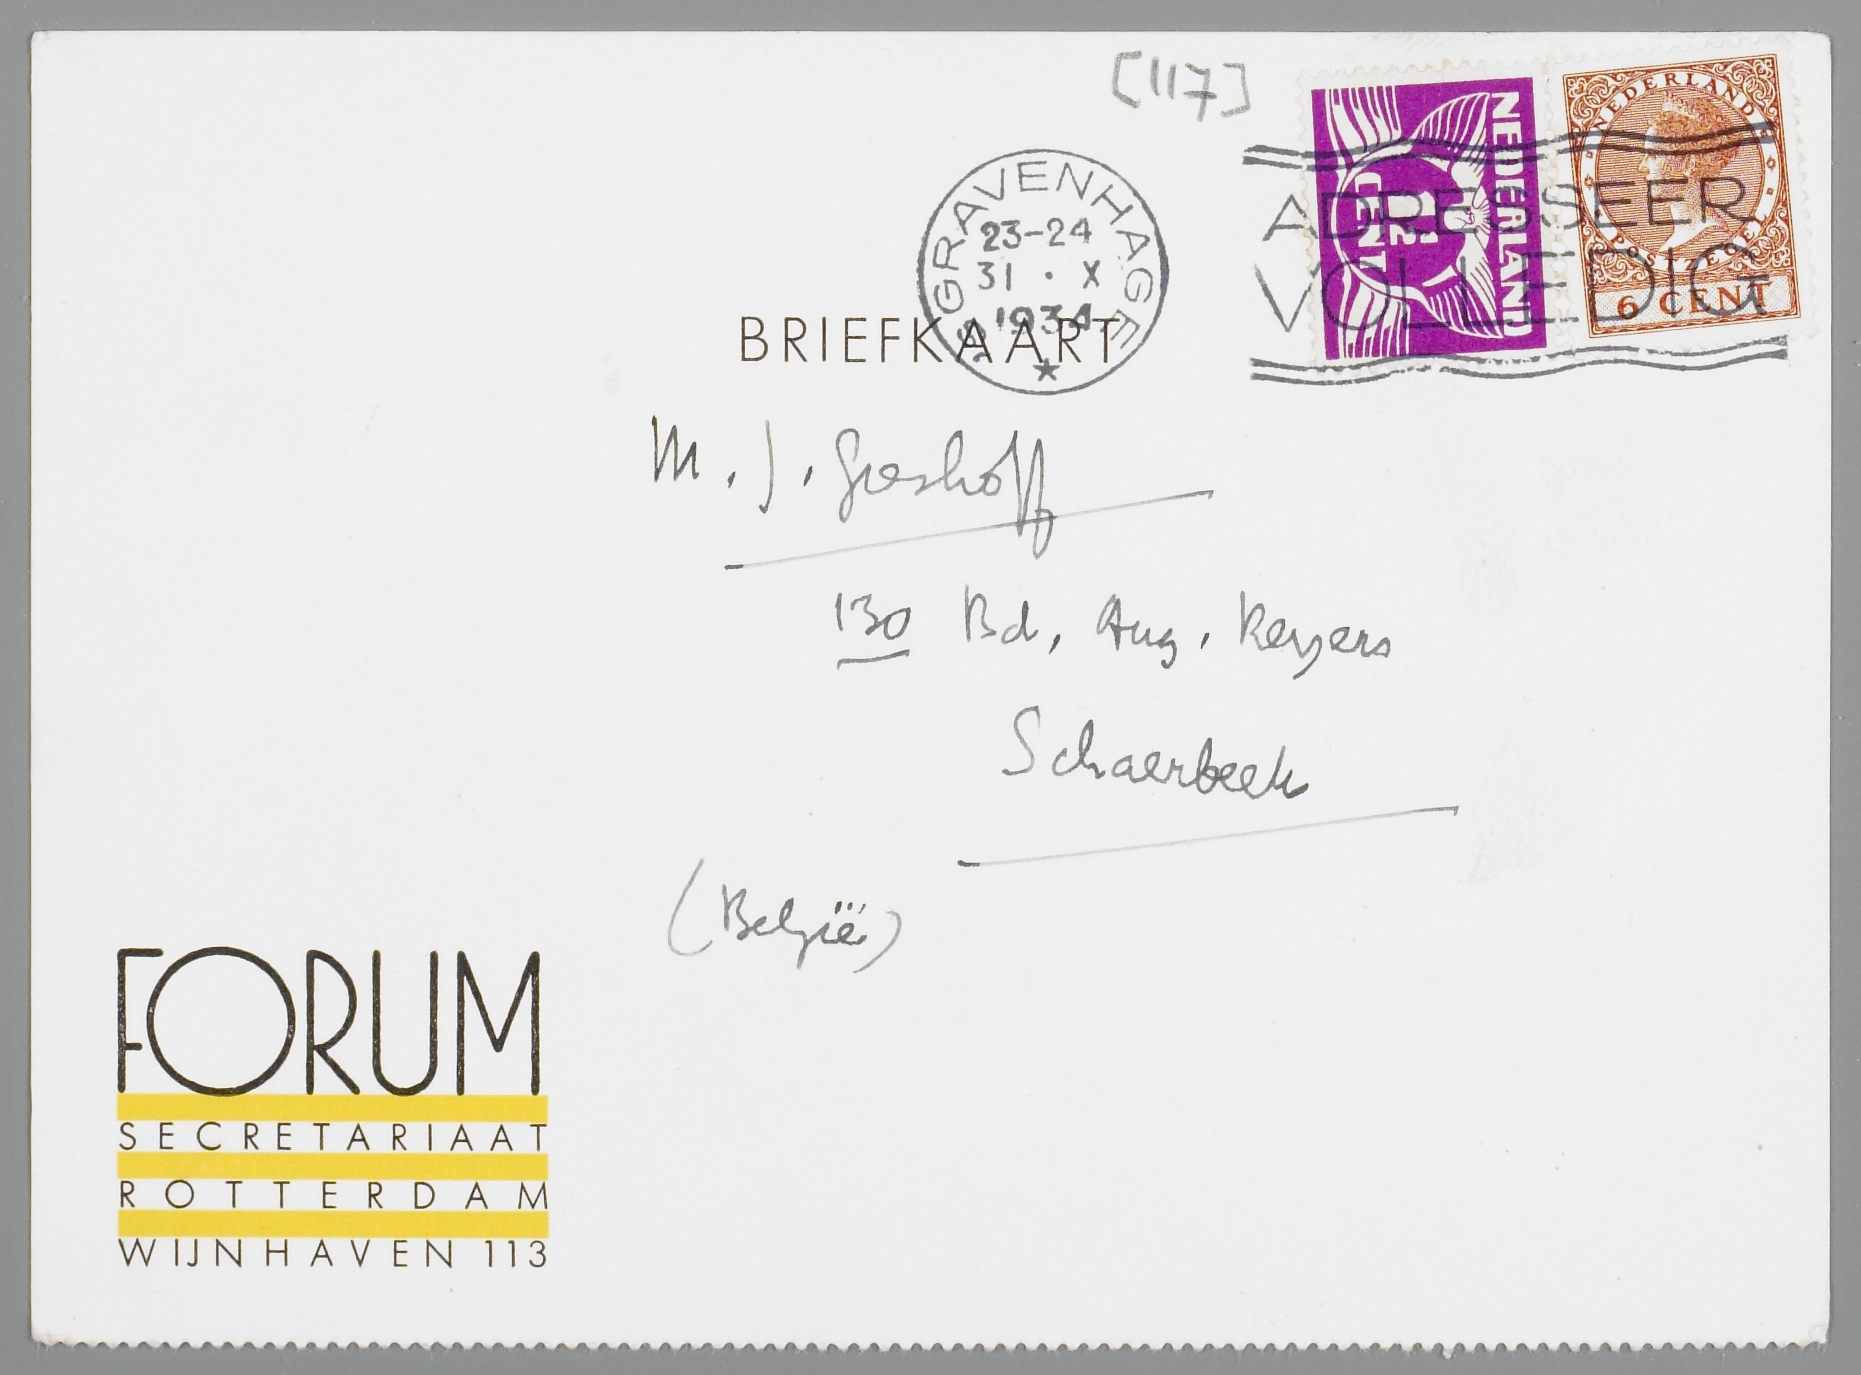 [117]
NEDERLAND
1½
CENT
NEDERLAND
POSTZEGEL
6 CENT
'S GRAVENHAGE
23-24
31 · X
1934
ADRESSEER
VOLLEDIG
BRIEFKAART
M. J. Greshoff
130 Bd. Aug. Reyers
Schaerbeek
(België)
FORUM
SECRETARIAAT
ROTTERDAM
WIJNHAVEN 113